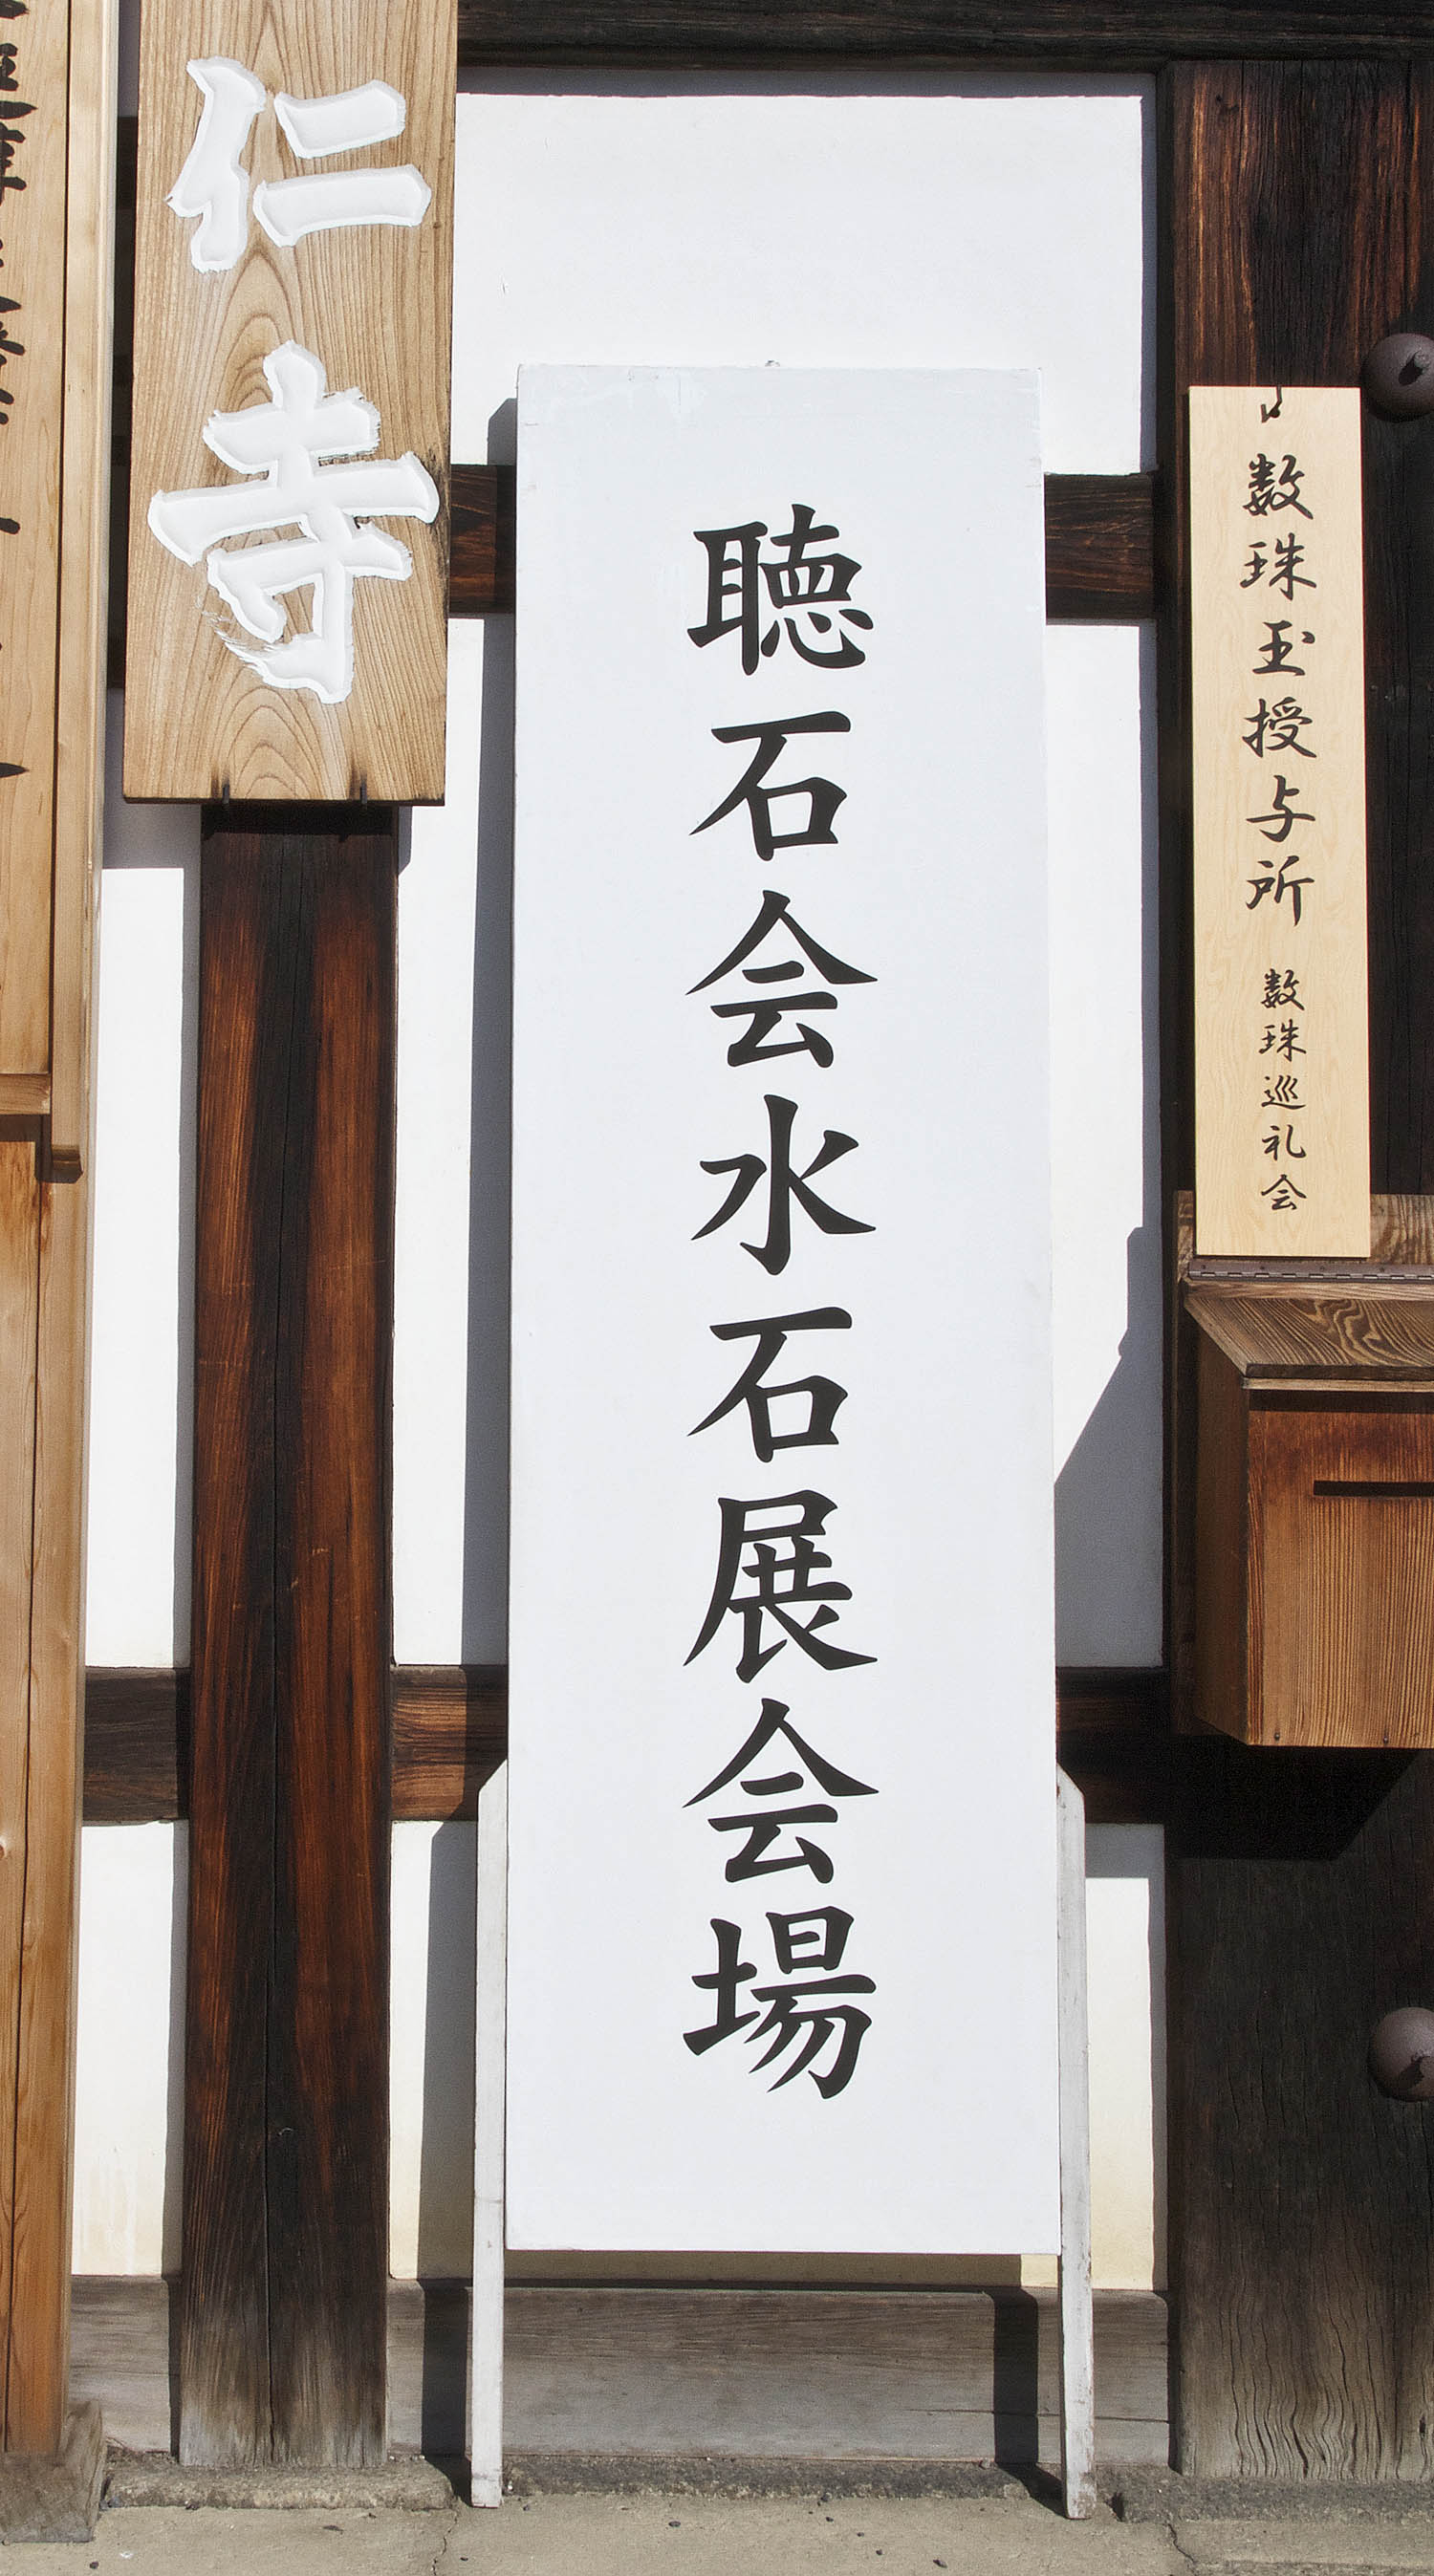 数珠玉授与所 数珠巡礼会
聴石会水石展会場
仁寺